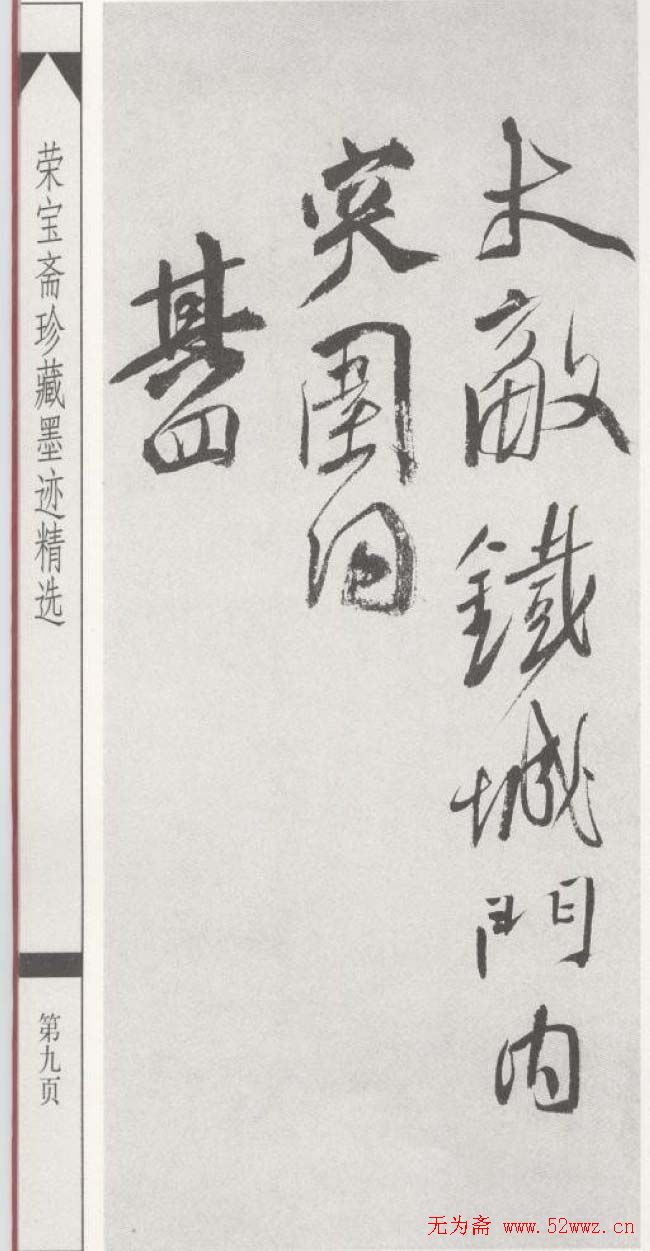 敵鐵城門内
突圍
其四
荣宝斋珍藏墨迹精选
第九页
无为斋 www.52wwz.cn